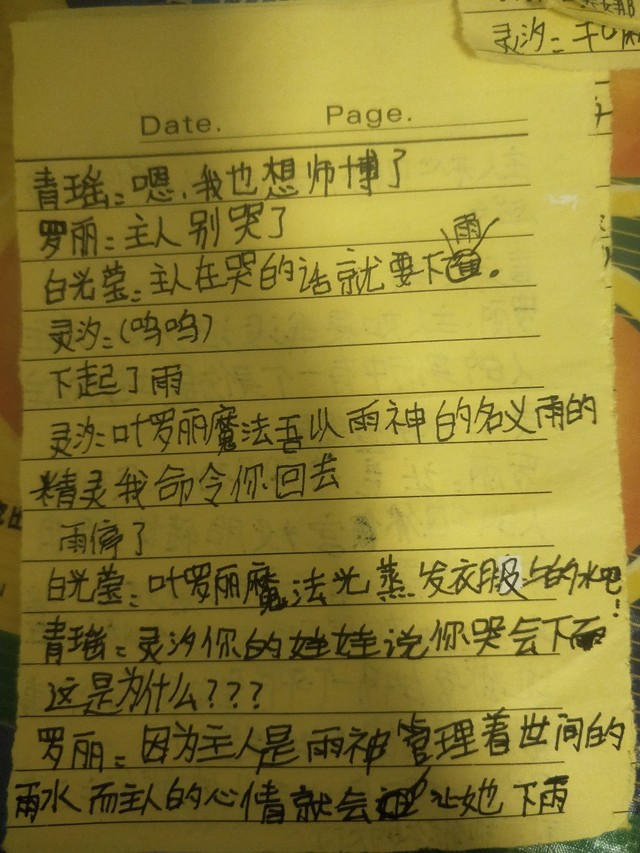 灵汐:
Date. Page.
青瑶:嗯,我也想师博了
罗丽:主人别哭了
白光莹:主人在哭的话就要下雨。
灵汐:(呜呜)
下起了雨
灵汐:叶罗丽魔法吾以雨神的名义雨的
精灵我命令你回去
雨停了
白光莹:叶罗丽魔法光蒸发衣服上的水吧!
青瑶:灵汐你的娃娃说你哭会下雨
这是为什么???
罗丽:因为主人是雨神管理着世间的
雨水而主人的心情就会让她下雨